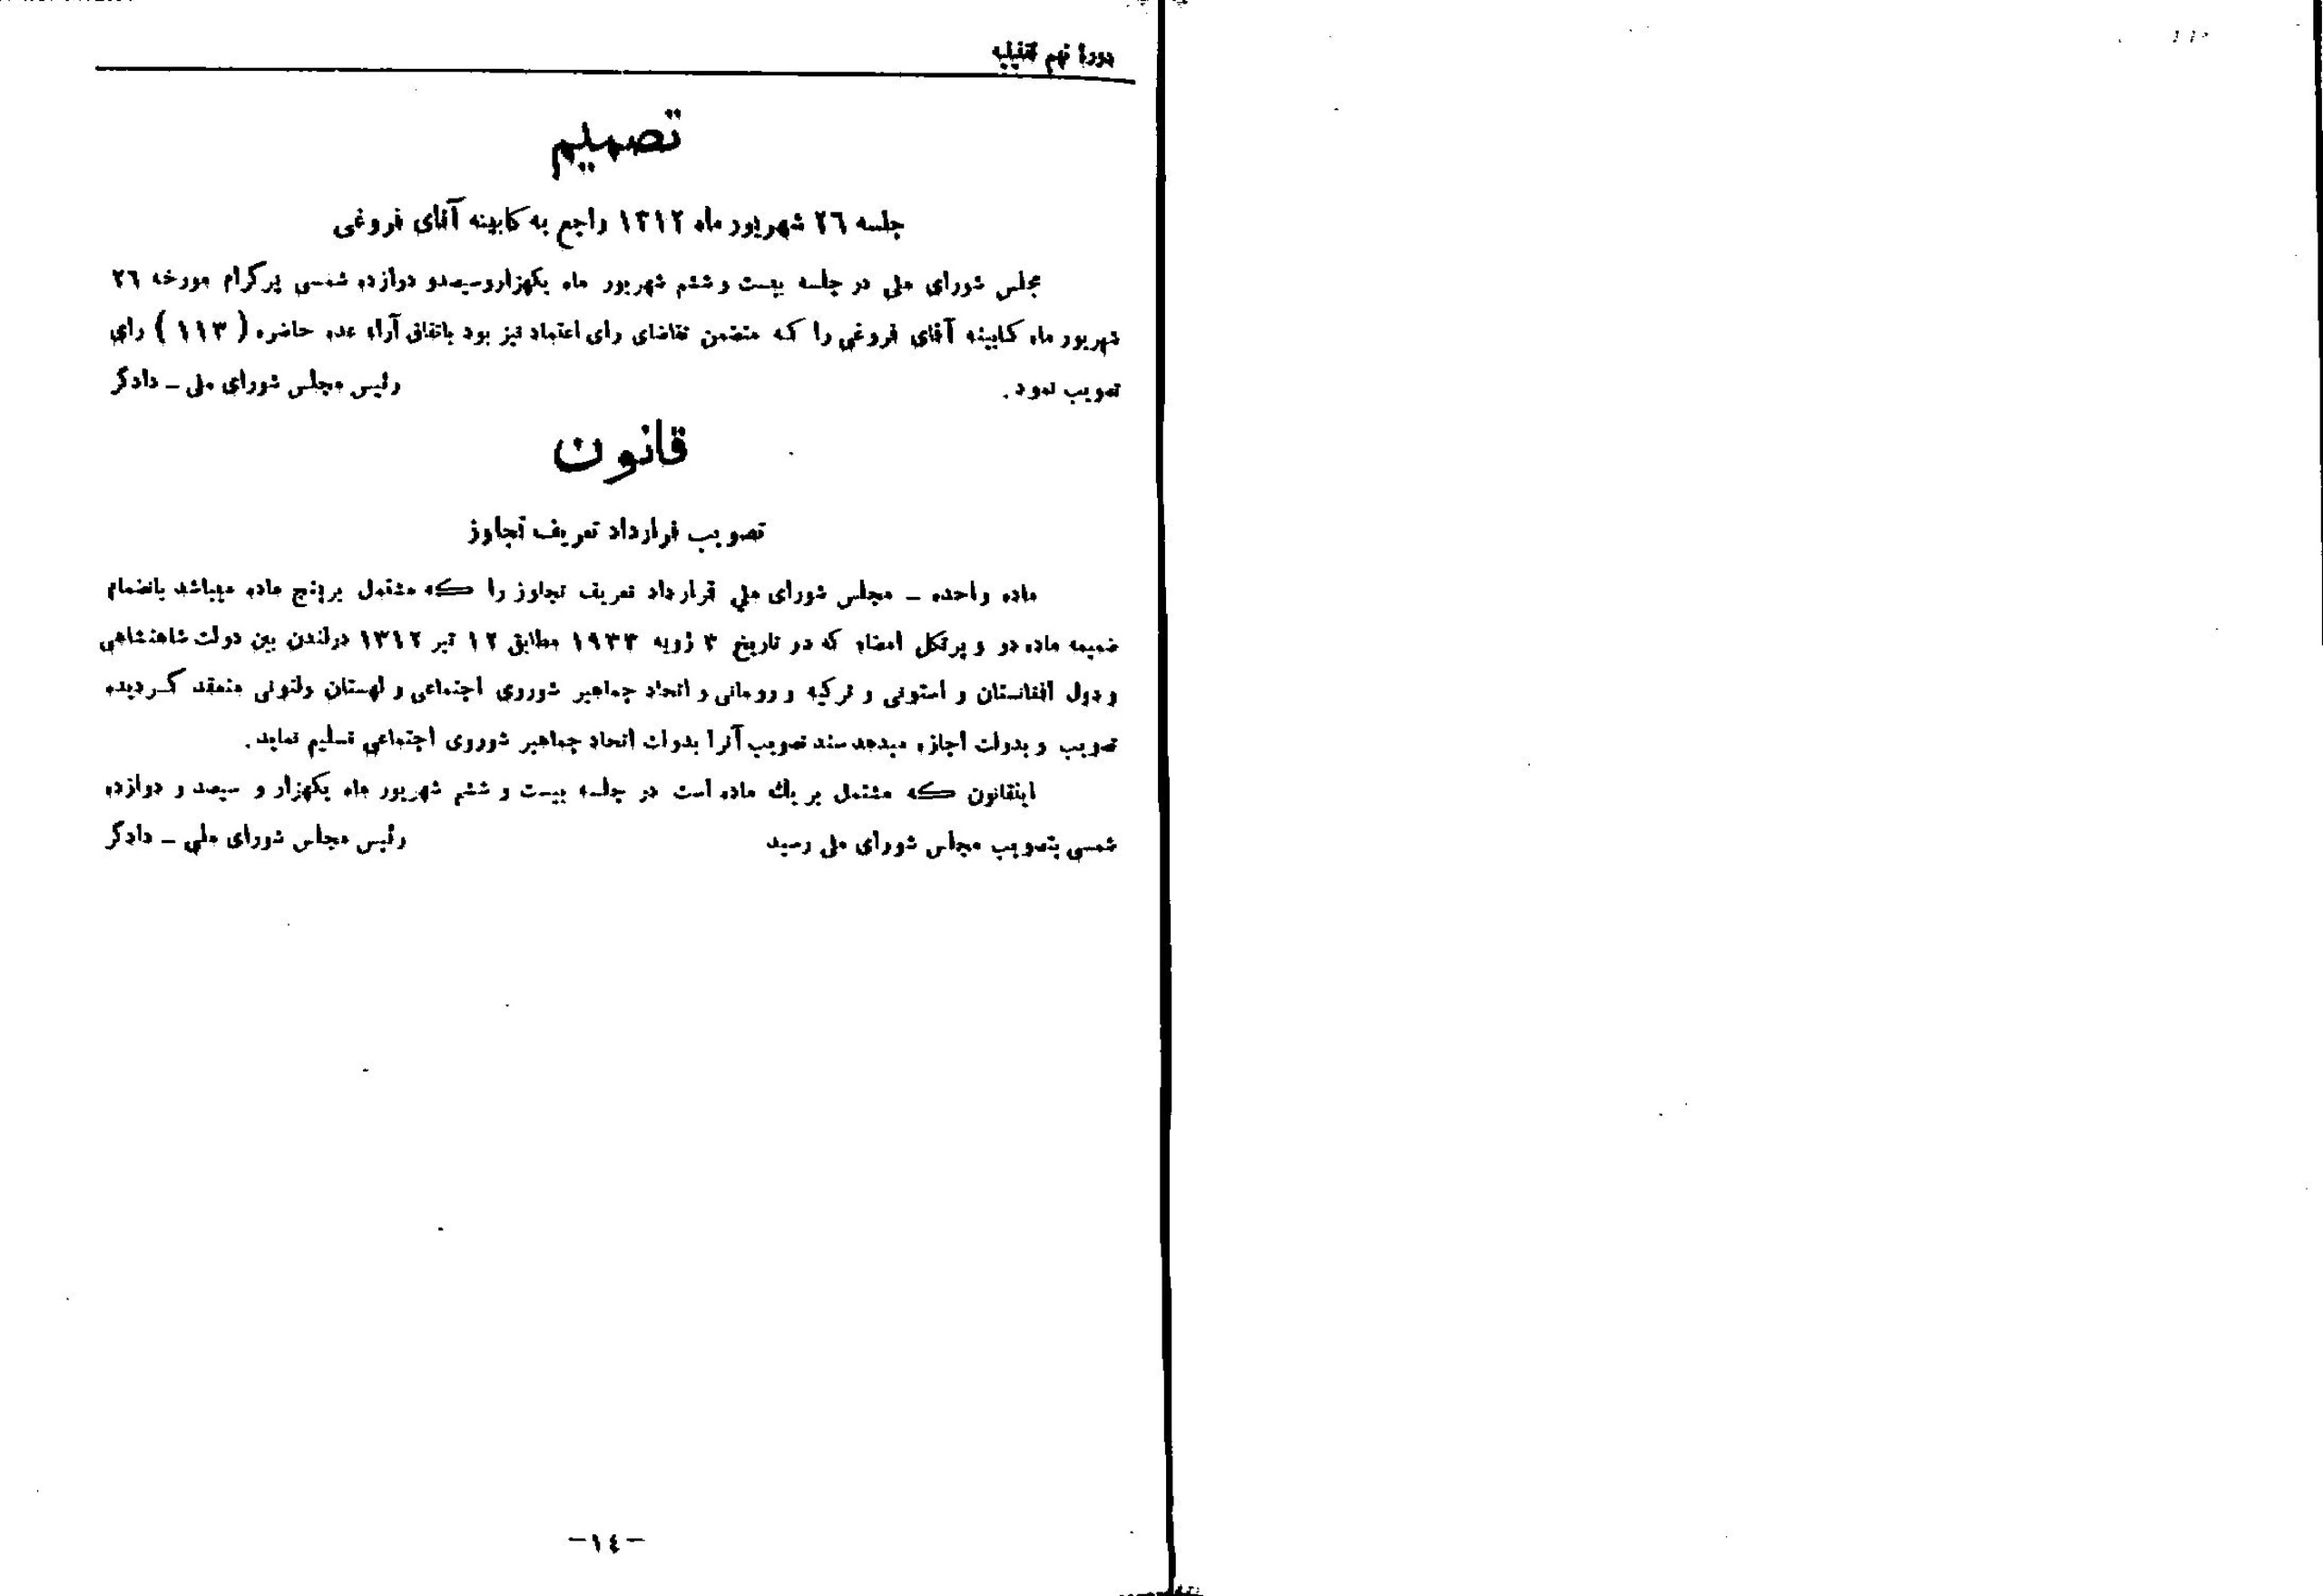 دوره نهم تقنینیه
تصمیم
جلسه ۲٦ شهریور ماه ۱۳۱۲ راجع به کابینه آقای فروغی
مجلس شورای ملی در جلسه بیست و ششم شهریور ماه یکهزاروسیصدو دوازده شمسی پرگرام مورخه ۲٦
شهریور ماه کابینه آقای فروغی را که متضمن تقاضای رای اعتماد نیز بود باتفاق آراء عده حاضره ( ۱۱۳ ) رای
تصویب نمود .
رئیس مجلس شورای ملی – دادگر
قانون
تصویب قرارداد تعریف تجاوز
ماده واحده – مجلس شورای ملی قرارداد تعریف تجاوز را که مشتمل برپنج ماده میباشد بانضمام
ضمیمه ماده دو و پرتکل امضاء که در تاریخ ۳ ژویه ۱۹۳۳ مطابق ۱۲ تیر ۱۳۱۲ درلندن بین دولت شاهنشاهی
و دول افغانستان و استونی و ترکیه و رومانی و اتحاد جماهیر شوروی اجتماعی و لهستان ولتونی منعقد گردیده
تصویب و بدولت اجازه میدهد سند تصویب آنرا بدولت اتحاد جماهیر شوروی اجتماعی تسلیم نماید .
اینقانون که مشتمل بر یك ماده است در جلسه بیست و ششم شهریور ماه یکهزار و سیصد و دوازده
شمسی بتصویب مجلس شورای ملی رسید
رئیس مجلس شورای ملی – دادگر
–۱٤–